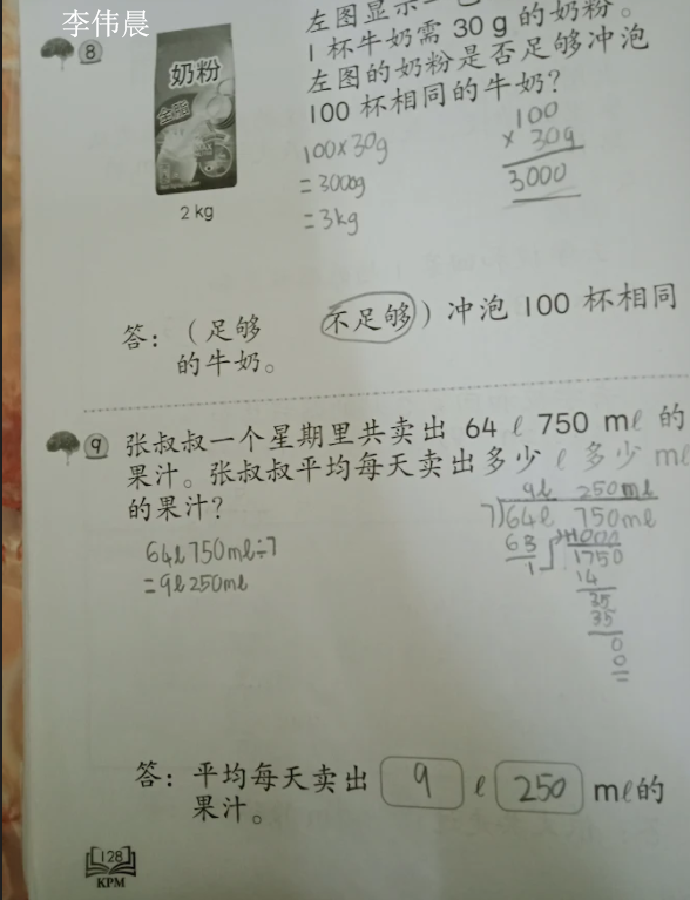 李伟晨
8
左图显示一
1 杯牛奶需 30 g 的奶粉。
左图的奶粉是否足够冲泡
100 杯相同的牛奶?
奶粉
2 kg
100×30g
=3000g
=3kg
100
× 30g
3000
答: (足够 不足够) 冲泡 100 杯相同
的牛奶。
9 张叔叔一个星期里共卖出 64 ℓ 750 mℓ 的
果汁。张叔叔平均每天卖出多少 ℓ 多少 mℓ
的果汁?
64ℓ750mℓ÷7
=9ℓ250mℓ
9ℓ 250mℓ
7)64ℓ 750mℓ
63 +1000
1 1750
14
35
35
0
0
答: 平均每天卖出 9 ℓ 250 mℓ的
果汁。
128
KPM